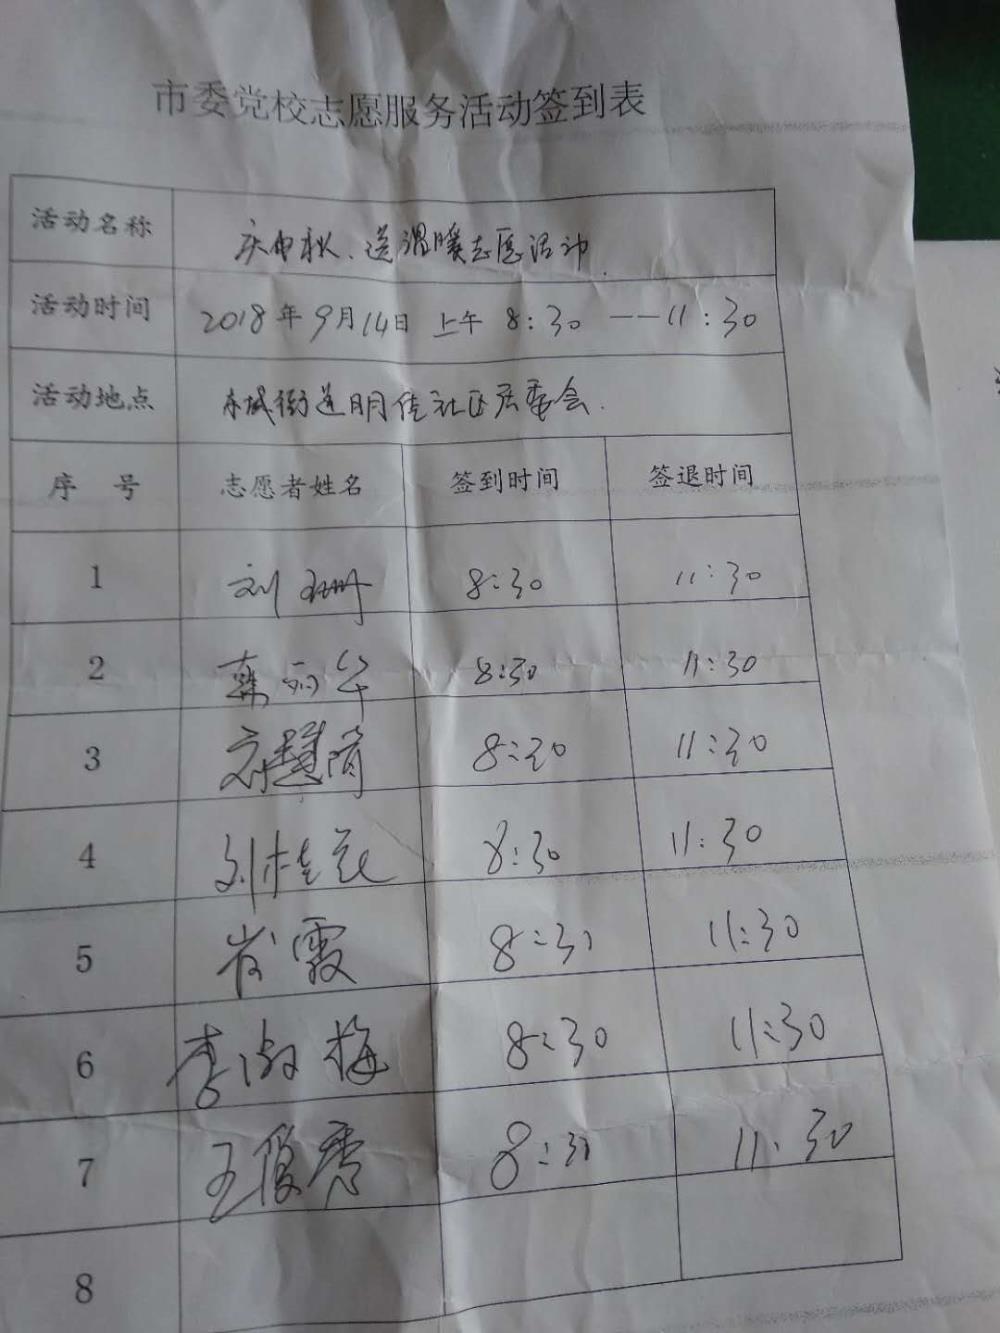 市委党校志愿服务活动签到表
活动名称 庆中秋、送温暖志愿活动.
活动时间 2018年9月14日 上午 8:30 ——11:30
活动地点 东城街道明佳社区居委会.
序 号 志愿者姓名 签到时间 签退时间
1 刘珊 8:30 11:30
2 丽华 8:30 11:30
3 8:30 11:30
4 刘桂花 8:30 11:30
5 崔霞 8:30 11:30
6 李淑梅 8:30 11:30
7 王俊秀 8:30 11:30
8